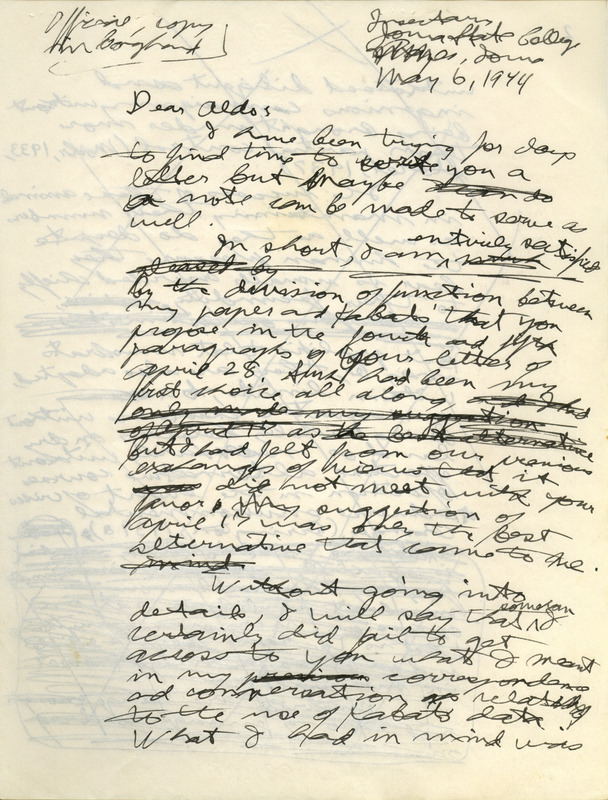 Office copy
Insectary
Iowa State College
Ames, Iowa
May 6, 1944
Dear Aldo:
I have been trying for days
to find time to write you a
letter but maybe
a note can be made to serve as
well.
In short, I am entirely satisfied
pleased by
by the division of function between
my paper and Kabat's that you
propose in the fourth and fifth
paragraphs of your letter of
April 28. Such had been my
first choice all along and I had
only made my suggestion
of April 17 as the best alternative
but I had felt from our previous
exchanges of views that it
did not meet with your
favor. My suggestion of
April 17 was only the best
alternative that came to me.
mind.
Without going into
details, I will say that I somehow
certainly did fail to get
across to you what I meant
in my previous correspondence
and conversation as relating
to the use of Kabat's data.
What I had in mind was